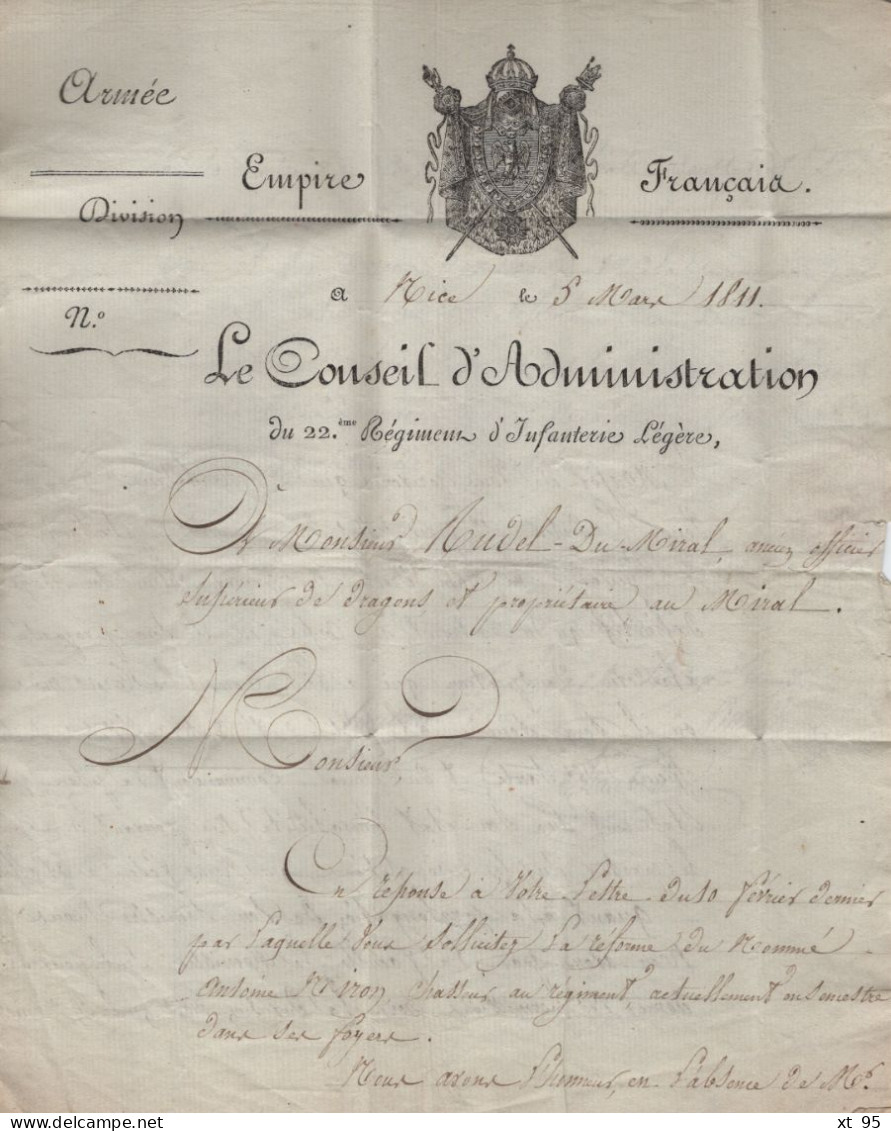 Armée
Empire Français.
Division
a Nice le 5 Mars 1811.
N.o
Le Conseil d'Administration
du 22.ème Régiment d'Infanterie Légère,
A Monsieur Rudel-Du-Miral, ancien officier
supérieur de dragons et propriétaire au Miral.
Monsieur,
En réponse à Votre Lettre du 10 février dernier
par Laquelle Vous sollicitez La réforme du Nommé
Antoine Miron, Chasseur au régiment, actuellement en semestre
dans ses foyers.
Nous avons L'honneur, en L'absence de Mr.
xt 95